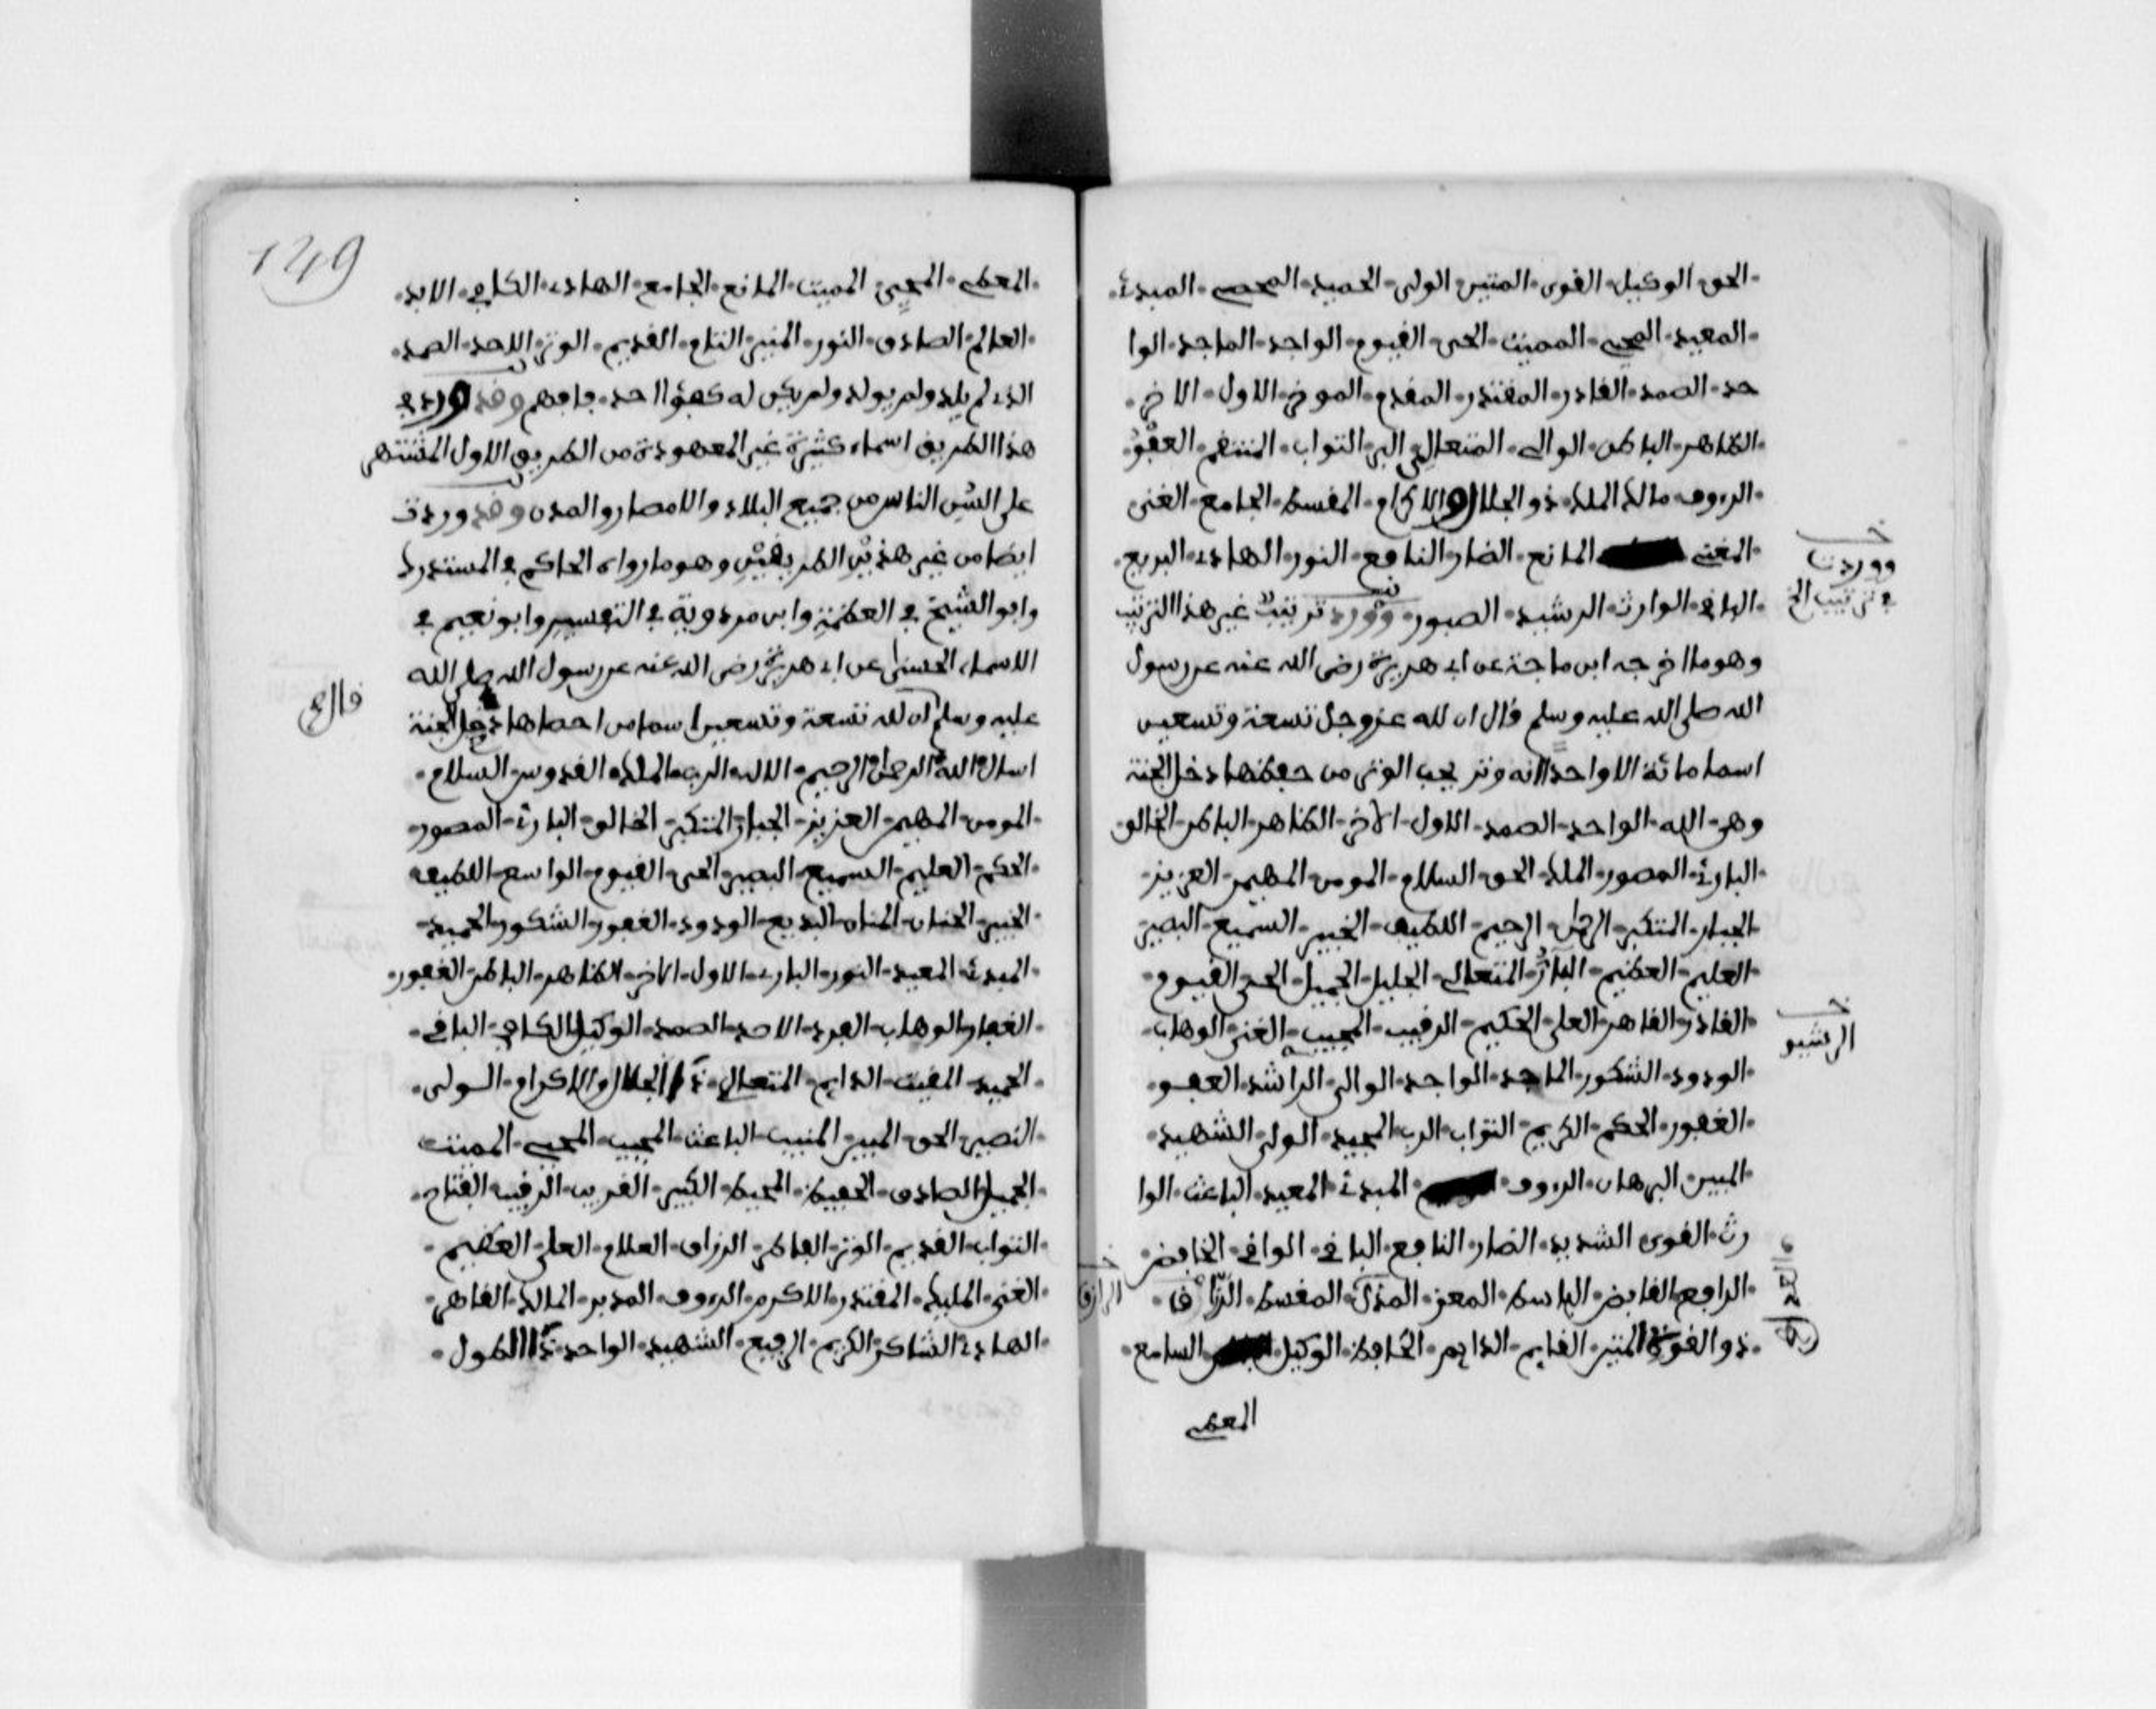 الحق الوكيل القوى المتين الولى الحميد المحصى المبدئ
المعيد المحيى المميت الحى القيوم الواجد الماجد الوا
حد الصمد القادر المقتدر المقدم الموخر الاول الاخر
الظاهر الباطن الوالى المتعالى البر التواب المنتقم العفو
الرءوف مالك الملك ذو الجلال والاكرام المقسط الجامع الغنى
المغنى المانع الضار النافع النور الهادى البديع
الباقى الوارث الرشيد الصبور وورد ترتيب غير هذا الترتيب
وهو ما اخرجه ابن ماجة عن ابى هريرة رضى الله عنه عن رسول
الله صلى الله عليه وسلم قال ان لله عز وجل تسعة وتسعين
اسما مائة الا واحدا انه وتر يحب الوتر من حفظها دخل الجنة
وهى الله الواحد الصمد الاول الاخر الظاهر الباطن الخالق
البارئ المصور الملك الحق السلام المومن المهيمن العزيز
الجبار المتكبر الرحمن الرحيم اللطيف الخبير السميع البصير
العليم العظيم البار المتعالى الجليل الجميل الحى القيوم
القادر القاهر العلى الحكيم الرقيب المجيب الغنى الوهاب
الودود الشكور الماجد الواجد الوالى الراشد العفو
الغفور الحكم الكريم التواب الرب المجيد الولى الشهيد
المبين البرهان الرءوف المبدئ المعيد الباعث الوا
رث القوى الشديد الضار النافع الباقى الواقى الخافض
الرافع القابض الباسط المعز المذل المقسط الرزاق
ذو القوة المتين القايم الدايم الحافظ الوكيل السامع
المعطى
ووردت
فى ترتيب الخ
الرشيد
الرازق
149
المعطى المحيى المميت المانع الجامع الهادى الكافى الابد
العالم الصادق النور المنير التام القديم الوتر الاحد الصمد
الذى لم يلد ولم يولد ولم يكن له كفؤا احد فافهم وقد ورد فى
هذا الطريق اسماء كثيرة غير المعهودة من الطريق الاول المشتهر
على السن الناس من جميع البلاد والامصار والمدن وقد وردت
ايضا من غير هذين الطريقين وهو ما رواه الحاكم فى المستدرك
وابو الشيخ فى العظمة وابن مردوية فى التفسير وابو نعيم فى
الاسماء الحسنى عن ابى هريرة رضى الله عنه عن رسول الله صلى الله
عليه وسلم ان لله تسعة وتسعين اسما من احصاها دخل الجنة
اسال الله الرحمن الرحيم الاله الرب الملك القدوس السلام
المومن المهيمن العزيز الجبار المتكبر الخالق البارئ المصور
الحكيم العليم السميع البصير الحى القيوم الواسع اللطيف
الخبير الحنان المنان البديع الودود الغفور الشكور المجيد
المبدئ المعيد النور البارى الاول الاخر الظاهر الباطن الغفور
الغفار الوهاب الفرد الاحد الصمد الوكيل الكافى الباقى
الحميد المقيت الدايم المتعالى ذا الجلال والاكرام الولى
النصير الحق المبين المنيب الباعث المجيب المحيى المميت
الجميل الصادق الحفيظ المحيط الكبير القريب الرقيب الفتاح
التواب القديم الوتر الفاطر الرزاق العلام العلى العظيم
الغنى المليك المقتدر الاكرم الرءوف المدبر المالك القاهر
الهادى الشاكر الكريم الرفيع الشهيد الواحد ذا الطول